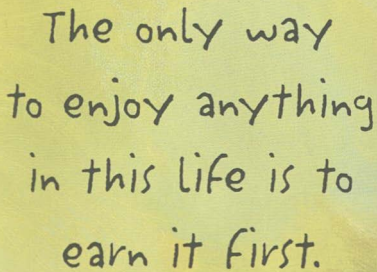 The only way
to enjoy anything
in this life is to
earn it first.